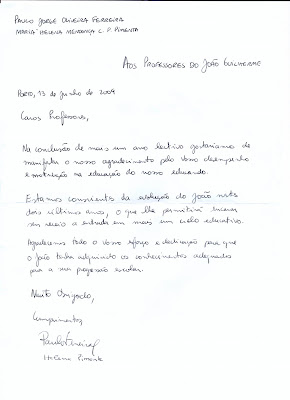 PAULO JORGE OLIVEIRA FERREIRA
MARIA HELENA MENDONÇA C. P. PIMENTA
AOS PROFESSORES DO JOÃO GUILHERME
PORTO, 13 de Junho de 2009
Caros Professores,
Na conclusão de mais um ano lectivo gostaríamos de
manifestar o nosso agradecimento pelo vosso desempenho
e motivação na educação do nosso educando.
Estamos conscientes da evolução do João nestes
dois últimos anos, o que lhe permitirá encarar
sem receio a entrada em mais um ciclo educativo.
Agradecemos todo o vosso esforço e dedicação para que
o João tenha adquirido os conhecimentos adequados
para a sua progressão escolar.
Muito Obrigado,
Cumprimentos,
Paulo Ferreira
Helena Pimenta